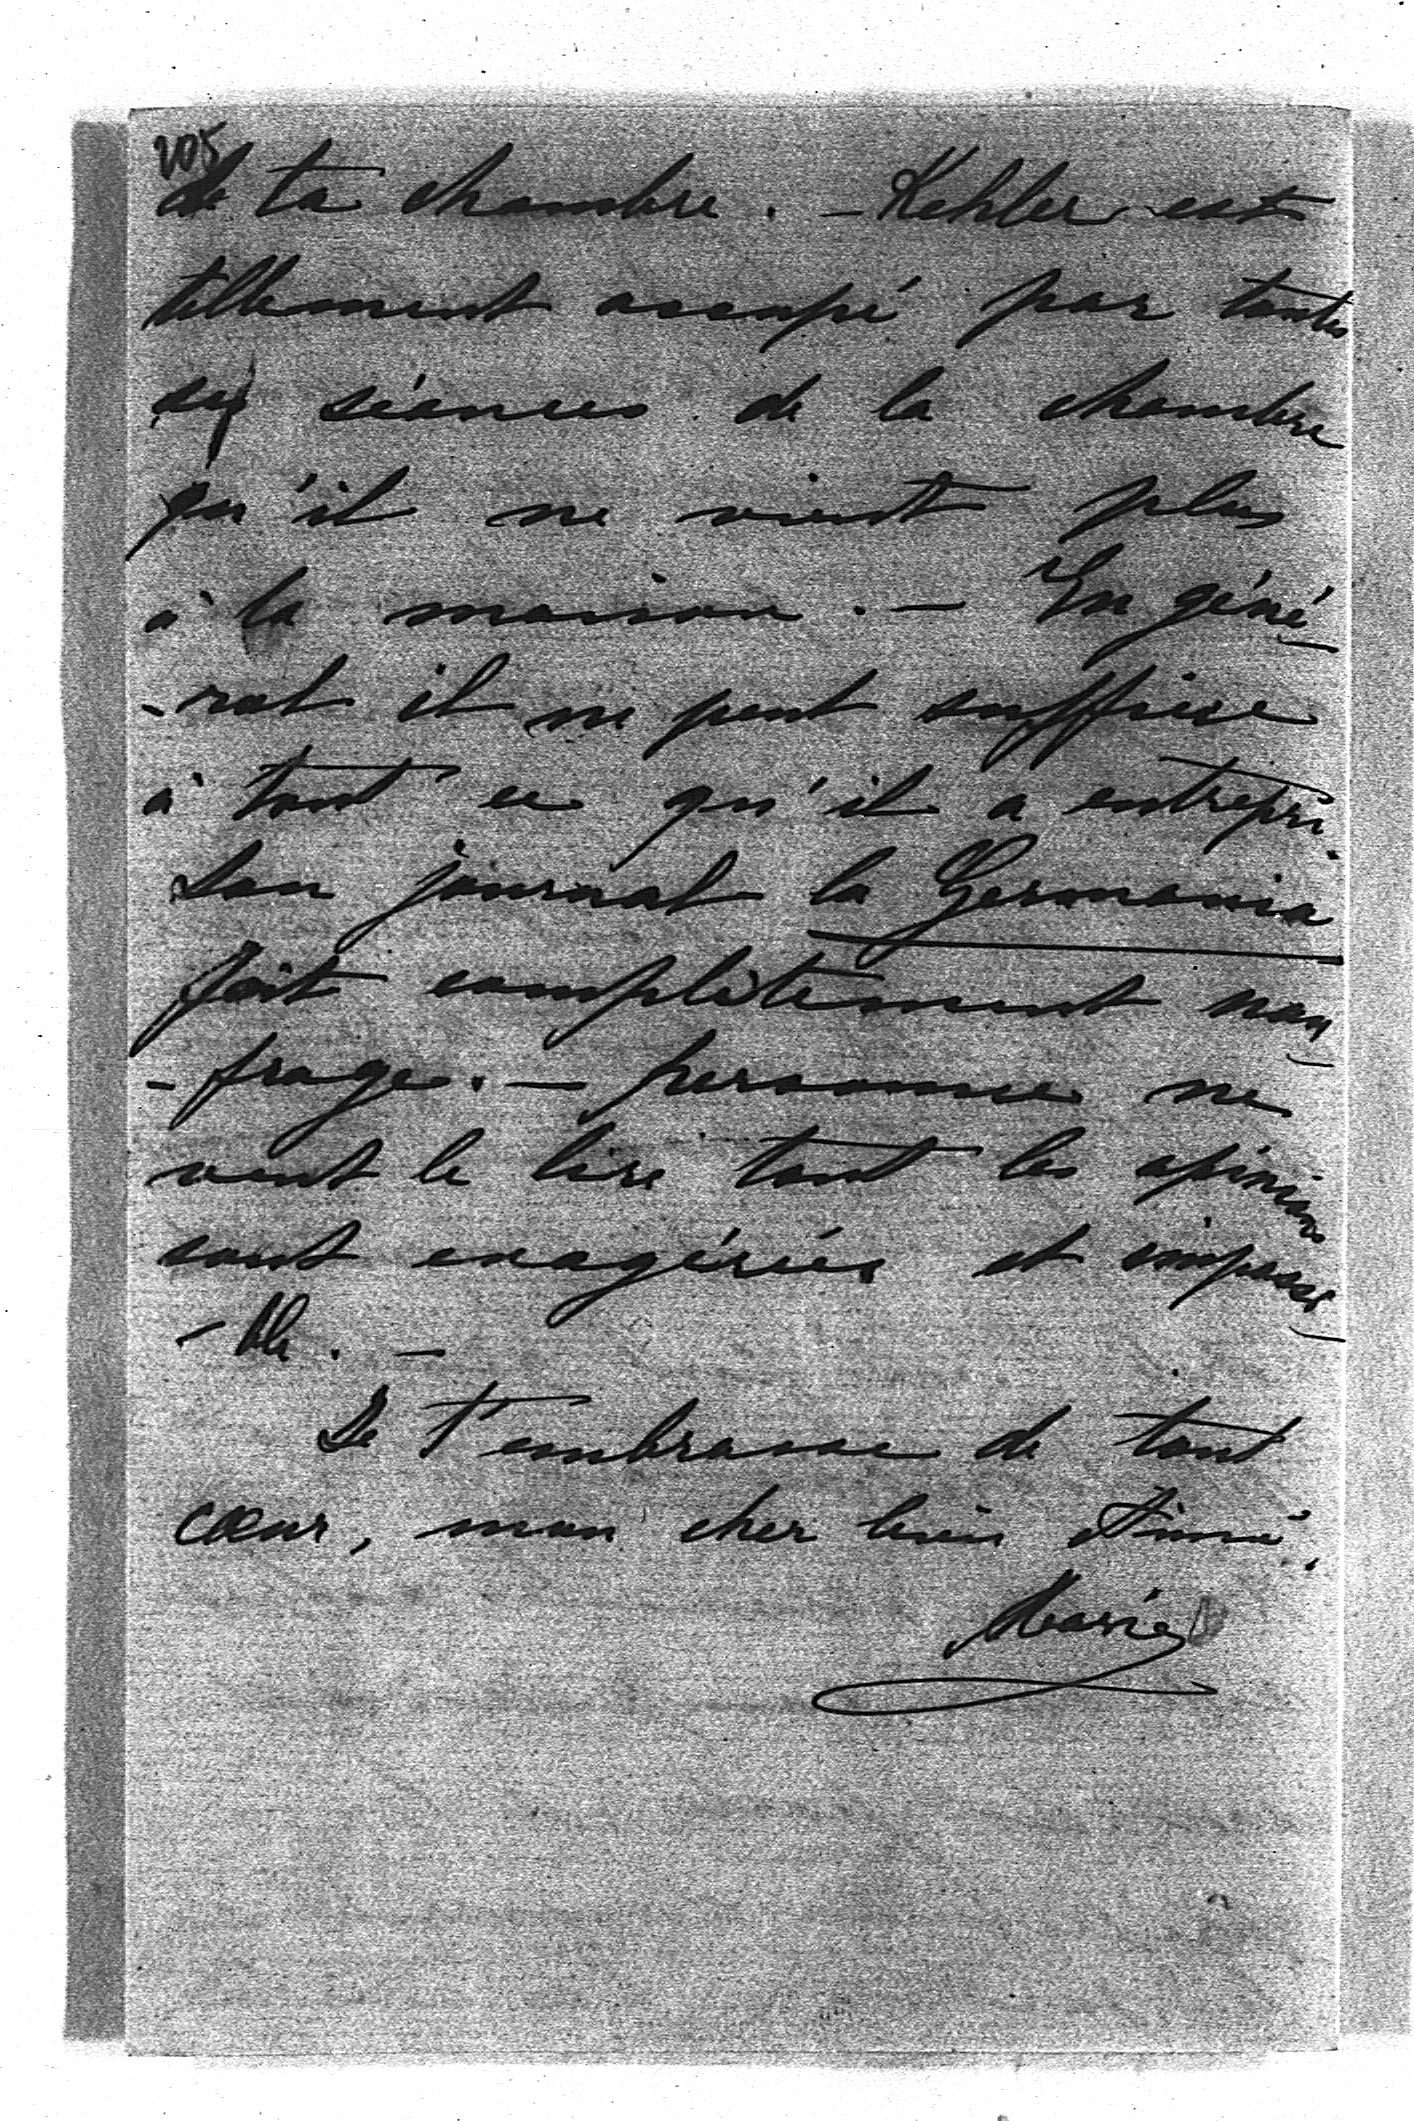 205
de ta chambre. — Kehler est
tellement occupé par toutes
ses séances de la chambre
qu'il ne vient plus
à la maison. — En géné-
-ral il ne peut suffire
à tout ce qu'il a entrepri.
Son journal la Germania
fait complètement nau-
-frage. — personne ne
veut le lire tant les opinions
sont exagérées et impossi-
-ble. —
Je t'embrasse de tout
cœur, mon cher bien Aimé.
Marie